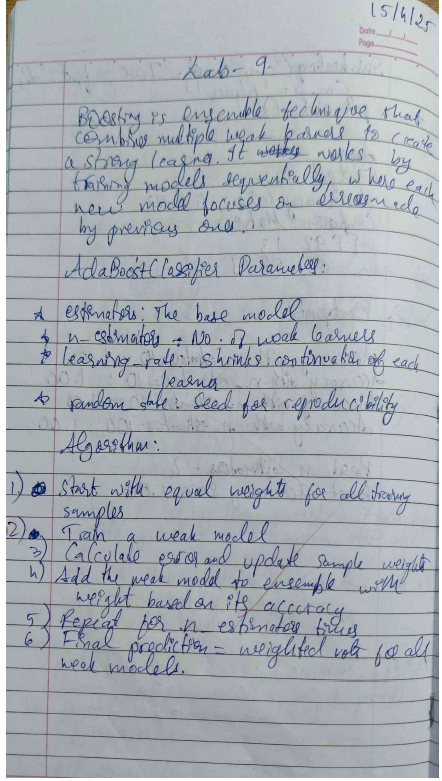 15/4/25
Date
Page
Lab - 9
Boosting is ensemble technique that
combines multiple weak learners to create
a strong learner. It works by
training models sequentially, where each
new model focuses on errors made
by previous ones.
AdaBoostClassifier Parameters:
* estimators: The base model
* n-estimators - No. of weak learners
* learning-rate: Shrinks continuation of each
learner
* random state: Seed for reproducibility
Algorithm:
1) Start with equal weights for all training
samples
2) Train a weak model
3) Calculate error and update sample weights
4) Add the weak model to ensemble with
weight based on its accuracy
5) Repeat for n_estimators times
6) Final prediction = weighted vote for all
weak models.